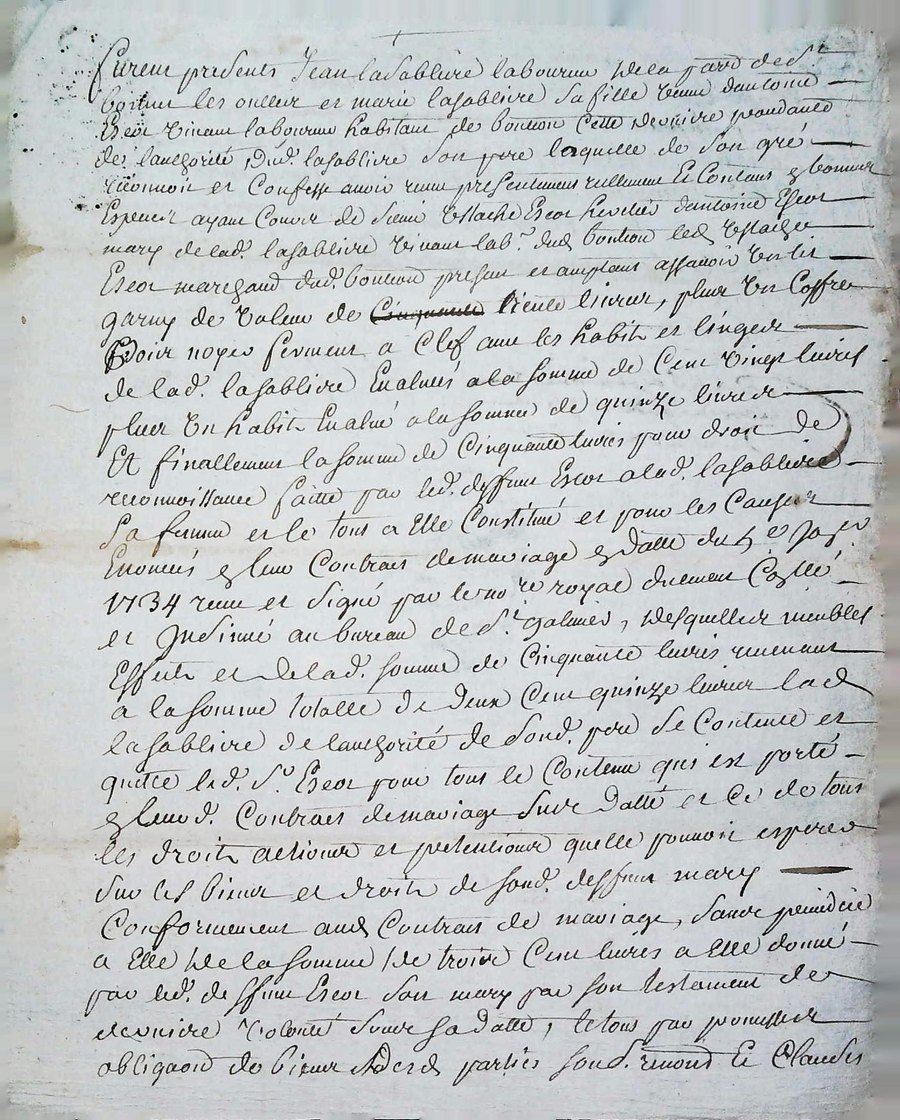 furent presents Jean lasabliere laboureur de la parr.e de S.t
bonnet les oulles et marie lasabliere sa fille veuve dantoine
Escot vivant laboureur habitant de bouttou Cette derniere procedante
de lauthorité dud. lasabliere son pere laquelle de son gré
reconnoit et Confesse avoir receu presentement reellement Et Contant &
Especes ayant Cours de sieur Eustache Escot heretier dantoine Escot
mary de lad. lasabliere vivant lab.r dud bouttou led Eustache
Escot marchand dud. bouttou present et acceptant assavoir un lit
garny de valeur de Cinquante trente livres, plus un Coffre
bois noyer fermant a Clef avec les habits et linges
de lad. lasabliere Evalués a la somme de Cent vingt livres
plus un habit Evalué a la somme de quinze livres
Et finallement la somme de Cinquante livres pour droit de
reconnoissance faitte par led. deffunt Escot a lad. lasabliere
sa femme et le tout a Elle Constitué et pour les Causes
Enoncés & leur Contrats de mariage & datte du
1734 receu et signé par le no.re royal duement Co.llé
et Insinué au bureau de S.t galmier, desquelles meubles
Effets et de lad. somme de Cinquante livres revenant
a la somme totalle de deux Cent quinze livres lad
lasabliere de lauthorité de sond. pere se Contente et
quitte led. S.r Escot pour tout le Contenu qui est porté
& leurd. Contrats de mariage sus datté et Ce de tous
les droits actions et pretentions quelle pouvoit esperer
sur les biens et droits de sond. deffunt mary
Conformement aud Contrats de mariage, sans prejudice
a Elle de la somme de trois Cent livres a Elle donné
par led. deffunt Escot son mary par son testament de
derniere volonté sous sa datte, le tout par promesses
obliga.on de biens desd parties soub. renon.d Et Clauses